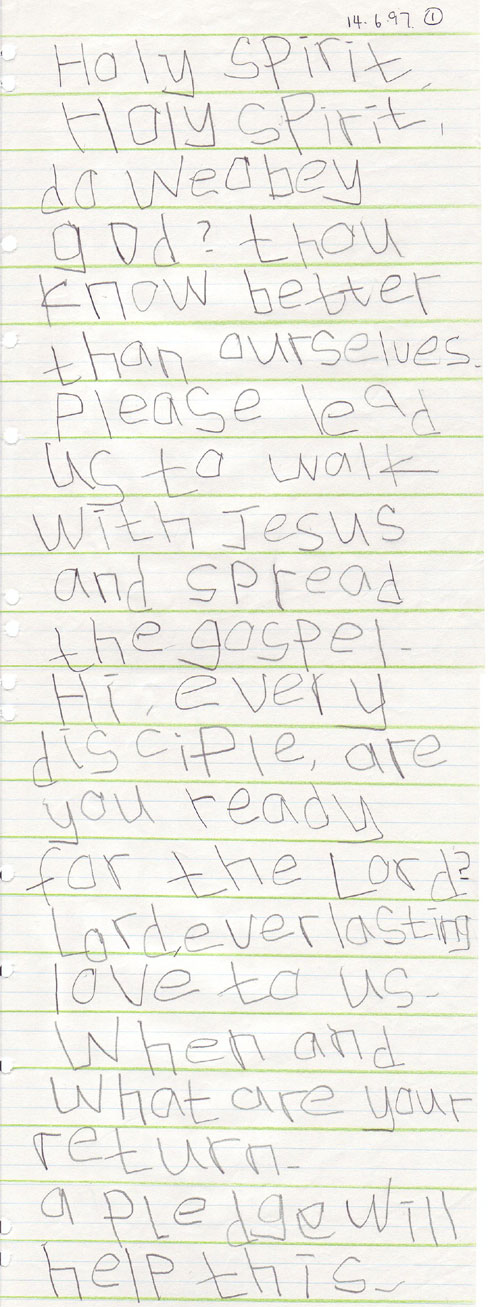 14.6.97. ①
Holy spirit,
Holy spirit,
do We obey
god? thou
know better
than ourselves.
Please lead
us to walk
with Jesus
and spread
the gospel.
Hi, every
disciple, are
you ready
for the Lord?
Lord, everlasting
love to us.
When and
What are your
return.
a pledge will
help this.